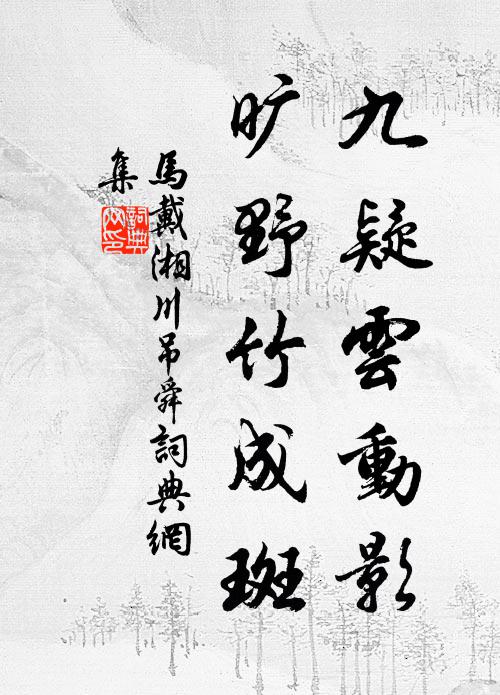 九疑雲動影
旷野竹成斑
馬戴湘川吊舜詞典網
集
詞典網印